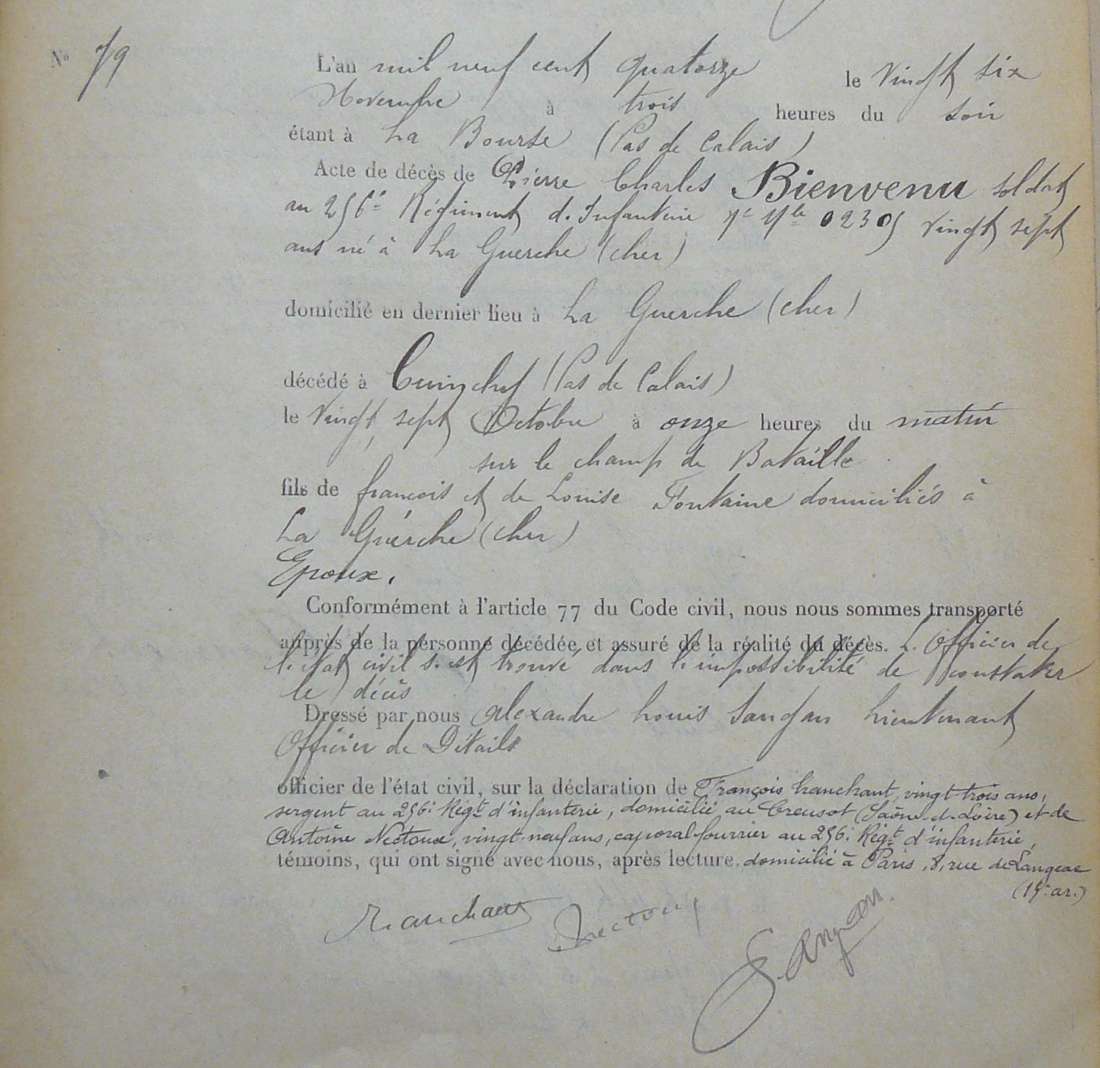 N° 79
L'an mil neuf cent quatorze le vingt six
Novembre à trois heures du soir
étant à La Bourse (Pas de Calais)
Acte de décès de Pierre Charles Bienvenu soldat
au 256e Régiment d'Infanterie Nº Mle 0230 vingt sept
ans né à La Guerche (cher)
domicilié en dernier lieu à La Guerche (cher)
décédé à Cuinchy (Pas de Calais)
le vingt sept Octobre à onze heures du matin
sur le champ de Bataille
fils de françois et de Louise Fontaine domiciliés à
La Guerche (cher)
Epoux.
Conformément à l'article 77 du Code civil, nous nous sommes transporté
auprès de la personne décédée et assuré de la réalité du décès. L'Officier de
l'état civil s'est trouvé dans l'impossibilité de constater
le décès
Dressé par nous Alexandre Louis Lieutenant
Officier de Détails
officier de l'état civil, sur la déclaration de François Hanchant, vingt trois ans,
sergent au 256e Régt d'infanterie, domicilié au Creusot (Saône-et-Loire) et de
Antoine Nectoux, vingt-neuf ans, caporal-fourrier au 256e Régt d'infanterie,
témoins, qui ont signé avec nous, après lecture. domicilié à Paris, 8, rue de Langeac
(15e ar.)
Nectoux